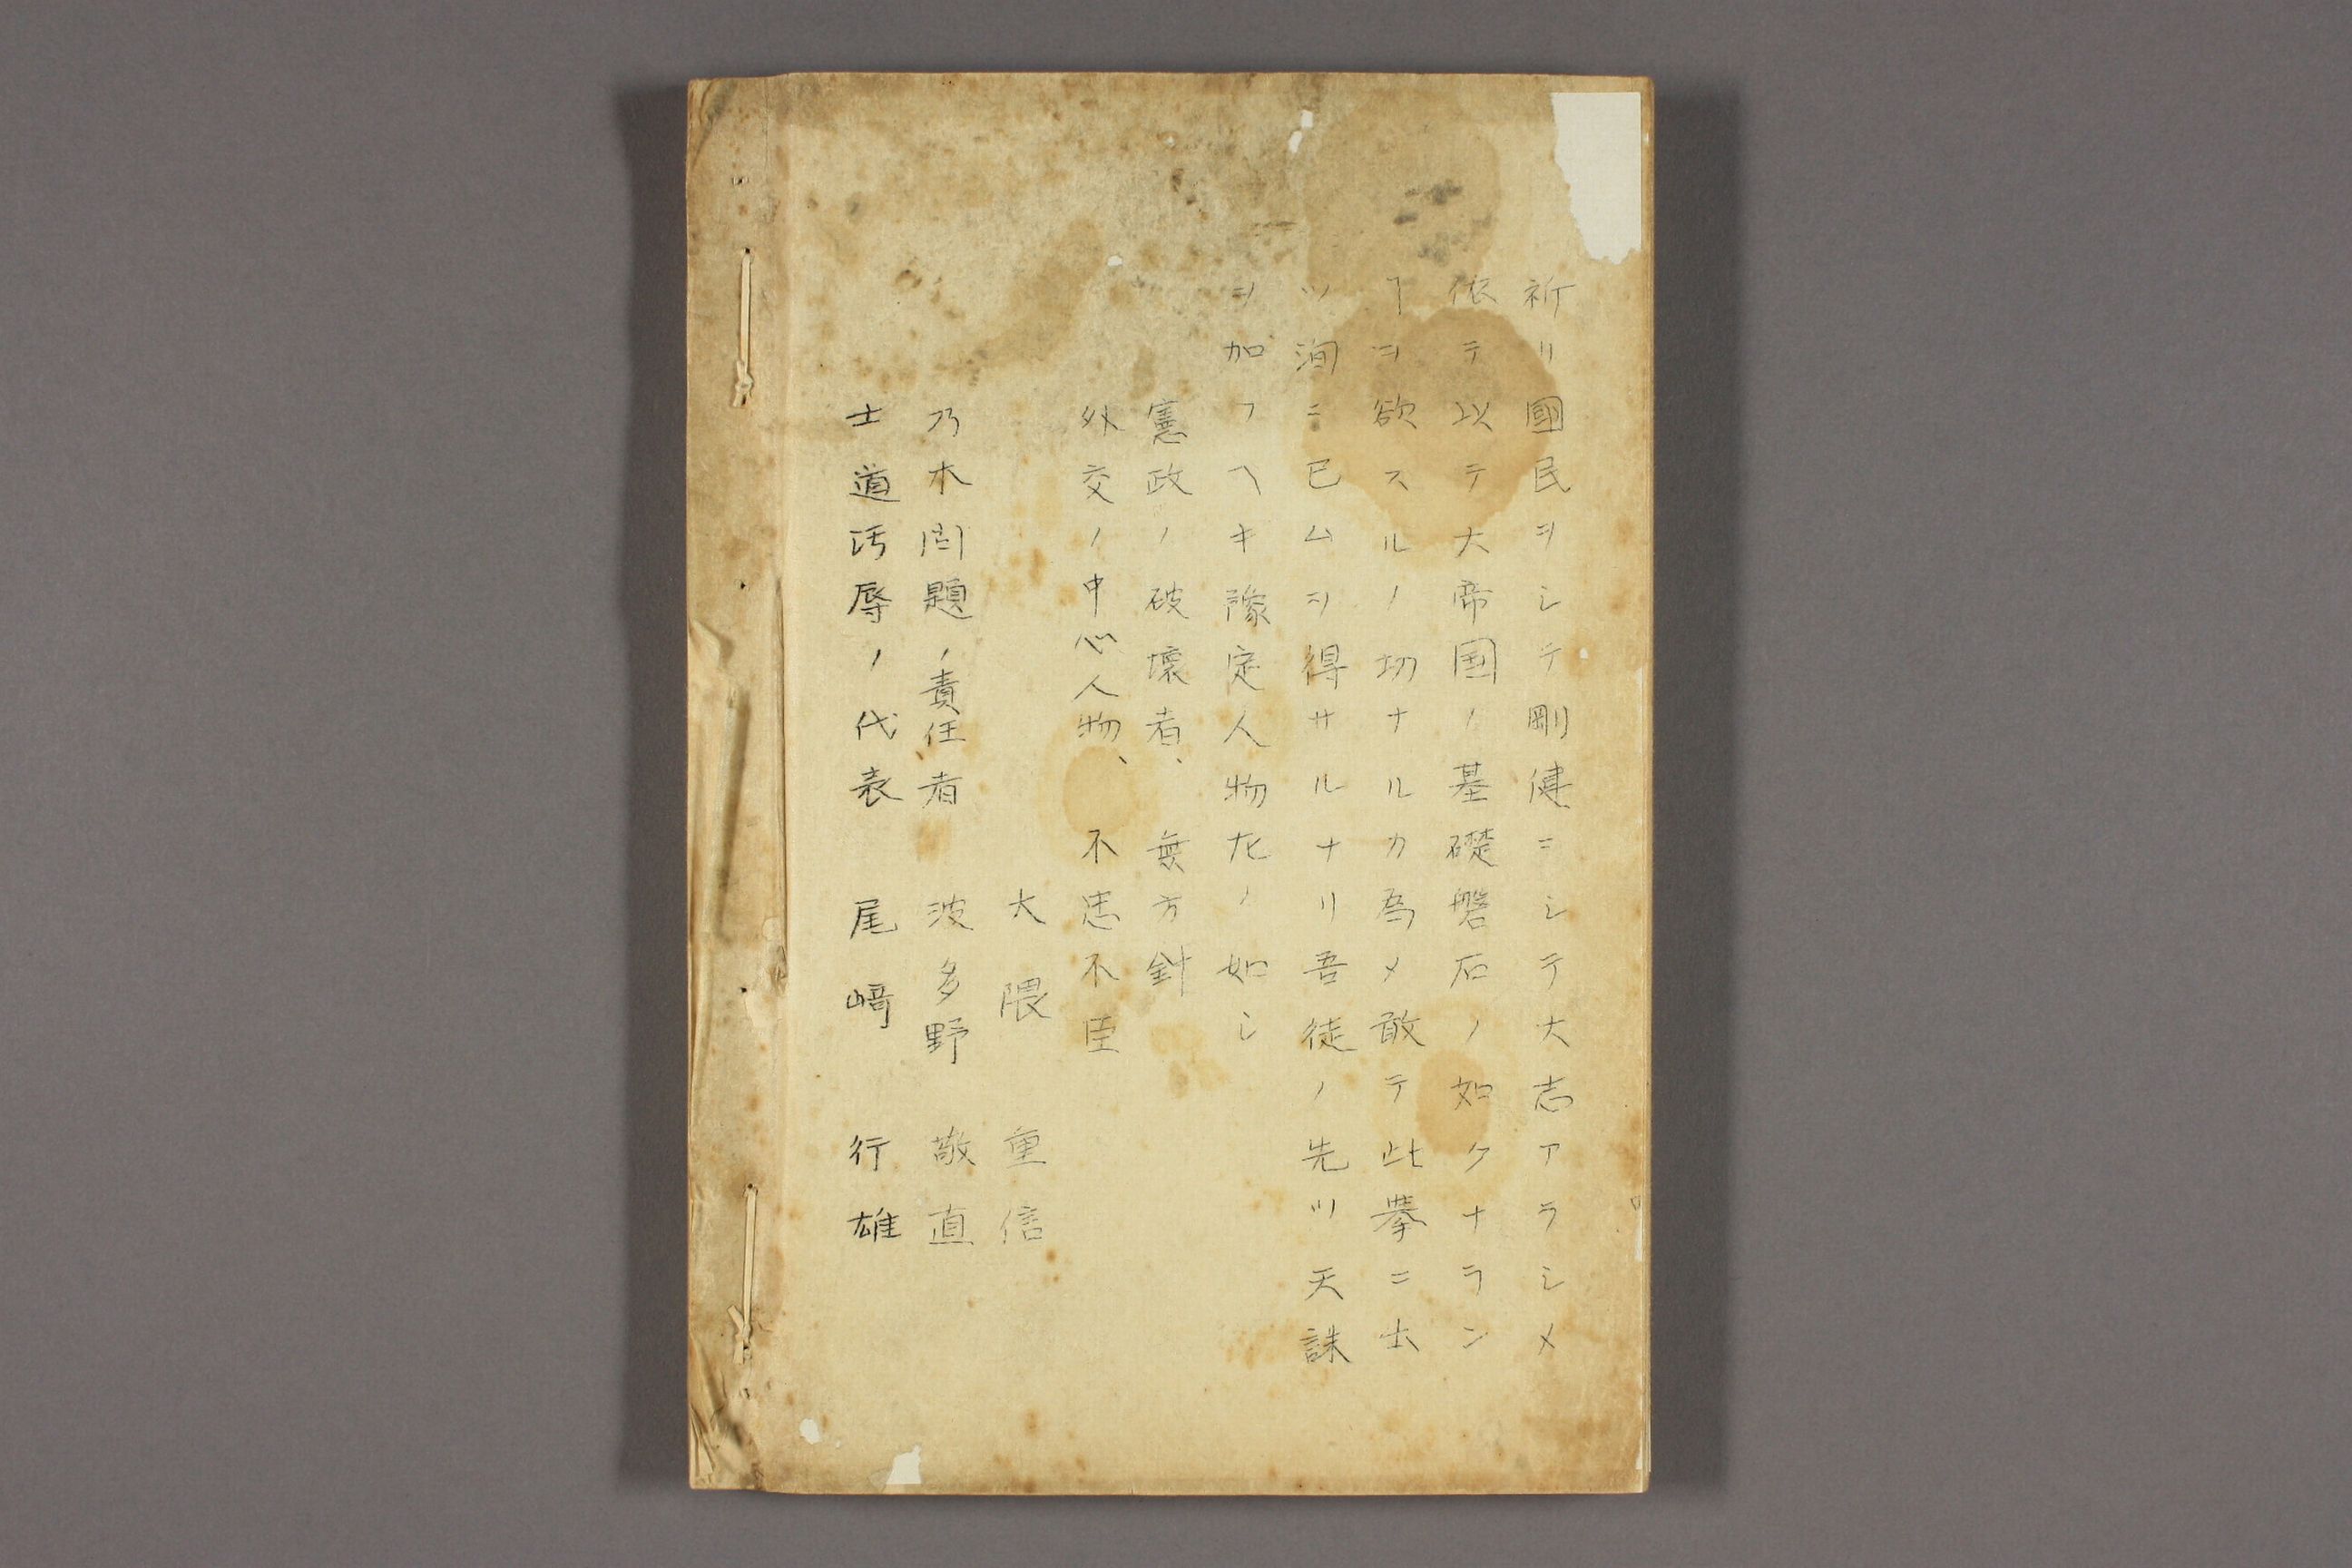 祈リ國民ヲシテ剛健ニシテ大志アラシメ
依テ以テ大帝国ノ基礎磐石ノ如クナラン
ヿヲ欲スルノ切ナルカ為メ敢テ此挙ニ出
ツ洵ニ已ムヲ得サルナリ吾徒ノ先ツ天誅
ヲ加フヘキ豫定人物左ノ如シ
憲政ノ破壊者、無方針
外交ノ中心人物、不忠不臣
大隈重信
乃木問題ノ責任者 波多野敬直
士道汚辱ノ代表 尾崎行雄